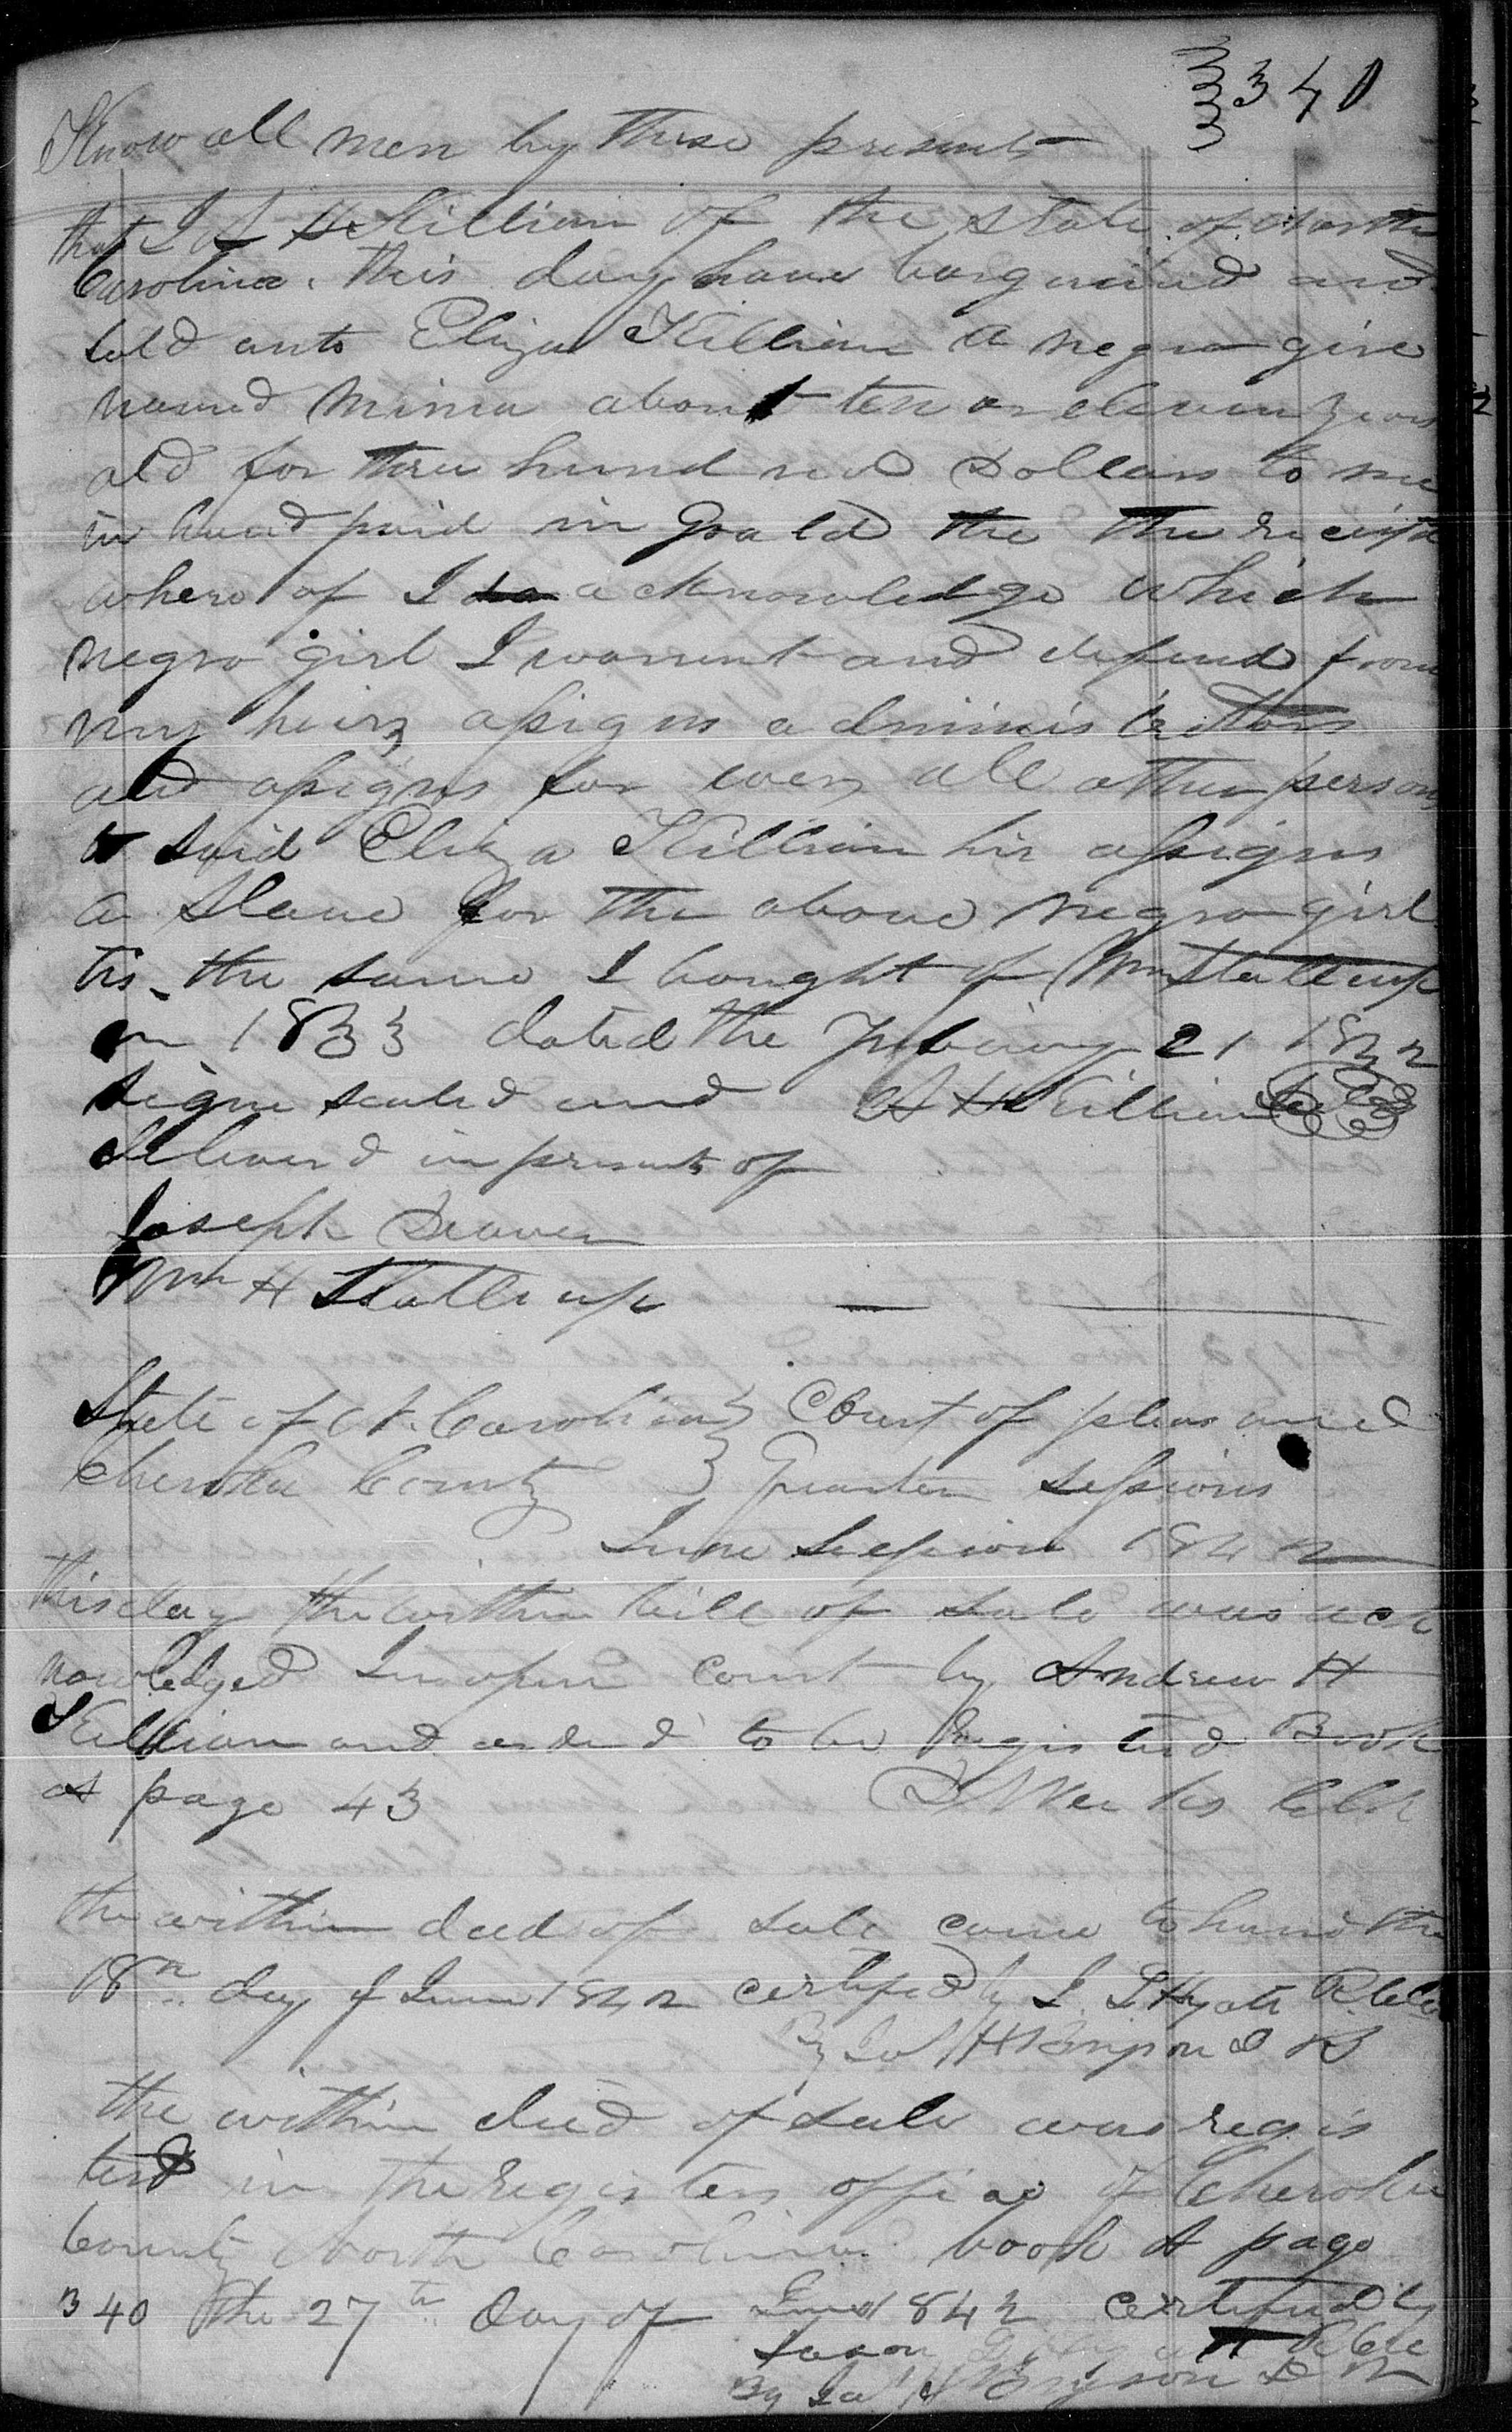 340
Know all men by these presents
that I A H Killian of the state of North
Carolina this day have bargained and
sold unto Eliza Killian a negro girl
named Mima about ten or eleven years
old for three hundred Dollars to me
in hand paid in Goald the the receipt
where of I acknowledge which
negro girl I warrent and defend from
my heirs assigns administrators
and assigns for ever all other persons
to said Eliza Killian hir assigns
a Slave for the above negro girl
tis the same I bought of Wm Stallcup
in 1833 dated the Febuary 21 1842
signe sealed and A H Killian
delivered in presents of
Joseph Deaver
Wm H Stallcup
State of N. Carolina } Court of pleas and
Cherokee County } Quarter sessions
June Session 1842
this day the within bill of sale was ack
nowledged In open Court by Andrew H
Killian and orderd to be Registerd Book
A page 43 Clk
the within deed of sale came to hand the
18th day of June 1842 certifed by J. D Hyatt
By H Bryson D R
the within deed of sale was regis
terd in the registers office of Cherokee
County North Carolina book A page
340 the 27th Day of June 1842 certified by
Jason
By H Bryson D R